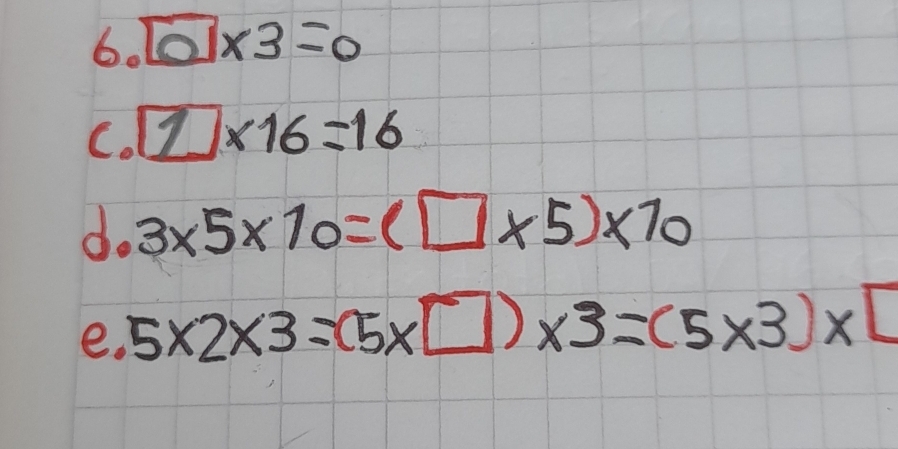 6. 0 × 3 = 0
c. 1 × 16 = 16
d. 3 × 5 × 10 = ( □ × 5 ) × 10
e. 5 × 2 × 3 = ( 5 × □ ) × 3 = ( 5 × 3 ) × □